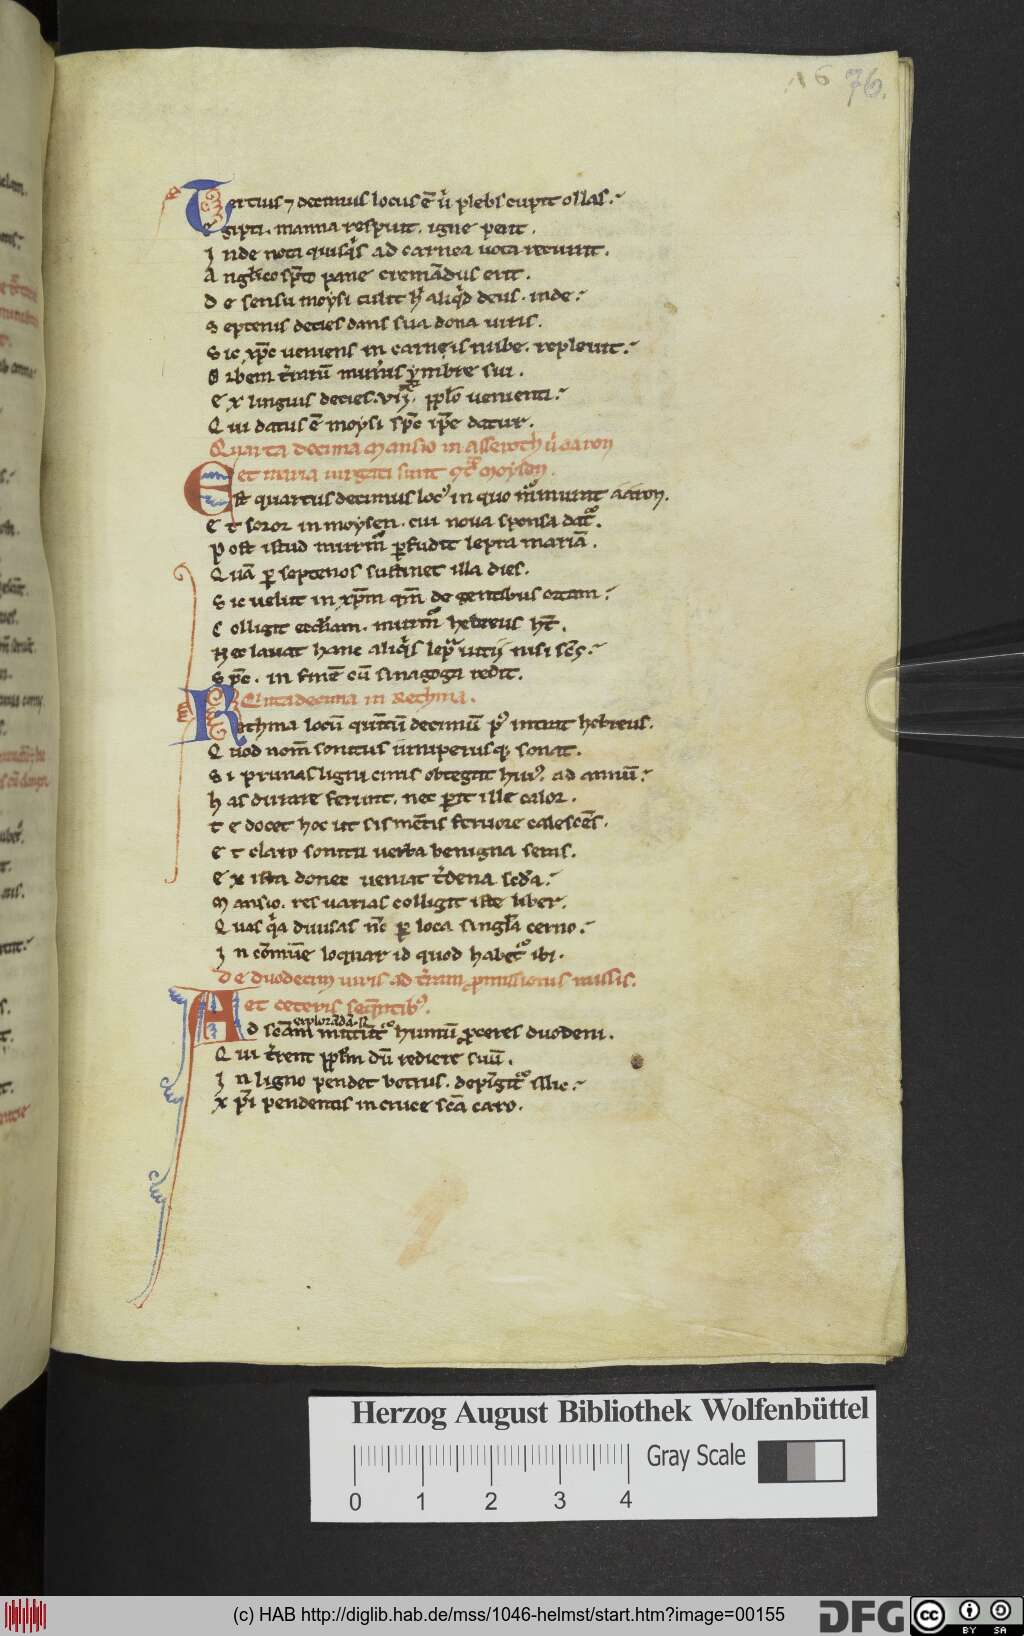 16 76.
Tertius ⁊ decimus locus ē ů plebs cupit ollas.
Egipti. manna respuit. igne perit.
Inde nota quisq's ad carnea uota recurrit.
Anglico sp̄to pane cremādus erit.
De sensu moysi tulit h' aliq'd deus. inde.
Septenis decies dans sua dona uiris.
Sic xp̄c ueniens in carneis nube. repleuit.
Orbem t'rarū munus ymbre sui.
Ex linguis decies. vij. pplo uenienti.
Qui datus ē moysi sp̄c ip̄e datur.
Quarta decima mansio in asseroth ů aaron
et maria uirgati sunt 9t̄ moysen.
Est quartus decimus loc' in quo murmurant aaron.
Et soror in moysen. cui noua sponsa dat̄.
Post istud murm̄ pfudit lepra mariā.
Quā p septenos sustinet illa dies.
Sic uelut in xp̄m qm̄ de gentibus ortam.
Colligit eccliam. murmur hebreus ht̄.
Nec lauat hanc aliq's lep̄ uitii nisi sc̄s.
Sp̄c. in fine cū sinagoga redit.
Quitadecima in Rethma.
Rethma locū quitū decimū p' intrat hebreus.
Quod nom̄ sonitus iuniperusq; sonat.
Si prunas ligni cinis obtegat hui'. ad annū.
Has durare ferunt. nec pit ille calor.
Te docet hoc ut sis mētis feruore calescēs.
Et claro sonitu uerba benigna seras.
Ex ista donec ueniat t'dena scda.
Mansio. res uarias colligit iste liber.
Quas q'a diuisas n̄c p loca singla cerno.
In cōmune loquar id quod habet' ibi.
De duodecim uiris ad t'ram pmissionis missis.
et ceteris seq̄ntib'.
Ad scām mittūt' humū pceres duodeni.
Qui t'rent pplm dū rediere suū.
In ligno pendet botrus. depīgit' illic.
Xp̄i pendentis in cruce scā caro.
Herzog August Bibliothek Wolfenbüttel
Gray Scale
0 1 2 3 4
(c) HAB http://diglib.hab.de/mss/1046-helmst/start.htm?image=00155
DFG
cc BY SA